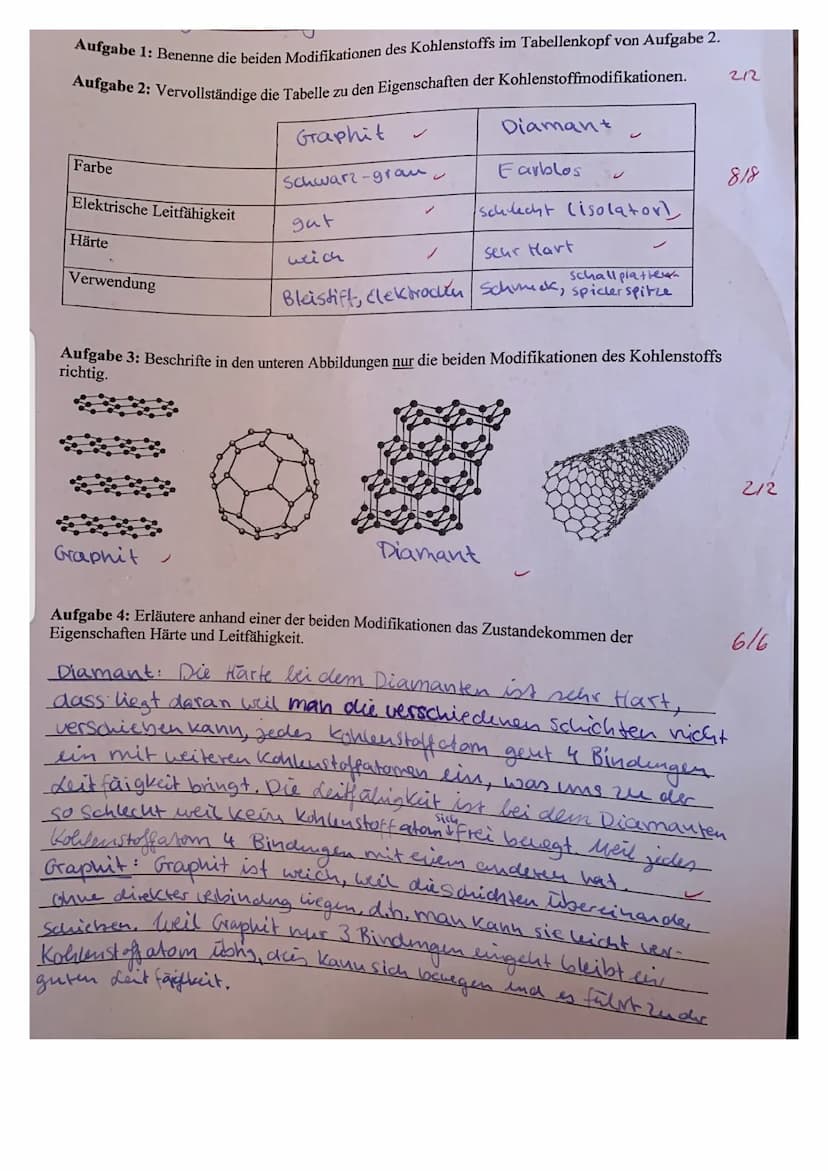 Aufgabe 1: Benenne die beiden Modifikationen des Kohlenstoffs im Tabellenkopf von Aufgabe 2.
Aufgabe 2: Vervollständige die Tabelle zu den Eigenschaften der Kohlenstoffmodifikationen.
2/2
Graphit Diamant
Farbe schwarz-grau Farblos
8/8
Elektrische Leitfähigkeit gut schlecht (isolator)
Härte weich sehr Hart
Verwendung Bleistift, Elektroden Schmuck, schallplatten
spielerspitze
Aufgabe 3: Beschrifte in den unteren Abbildungen nur die beiden Modifikationen des Kohlenstoffs
richtig.
2/2
Graphit Diamant
Aufgabe 4: Erläutere anhand einer der beiden Modifikationen das Zustandekommen der
Eigenschaften Härte und Leitfähigkeit.
6/6
Diamant: Die Härte bei dem Diamanten ist sehr Hart,
dass liegt daran weil man die verschiedenen schichten nicht
verschieben kann, jedes Kohlenstoffatom geht 4 Bindungen
ein mit weiteren Kohlenstoffatomen ein, was uns zu der
Leitfäigkeit bringt. Die Leitfähigkeit ist bei dem Diamanten
so schlecht weil kein Kohlenstoffatom sich frei bewegt. Weil jedes
Kohlenstoffatom 4 Bindungen mit einem anderen hat.
Graphit: Graphit ist weich, weil die schichten übereinander
ohne direkter verbindung liegen, d.h. man kann sie leicht ver-
schieben. Weil Graphit nur 3 Bindungen eingeht bleibt ein
Kohlenstoffatom übrig, dies kann sich bewegen und es führt zu der
guten Leitfähigkeit.